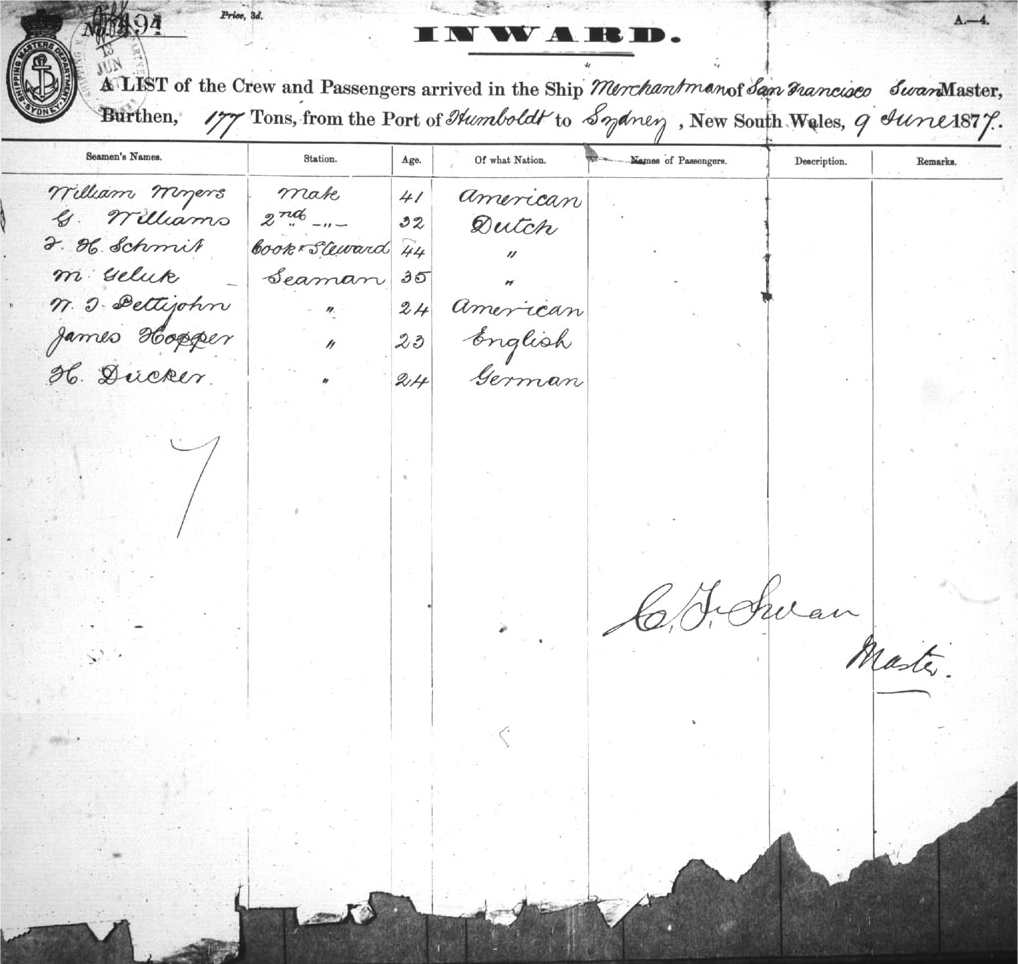 Price, 3d.
A.—4.
No. 494
INWARD.
SHIPPING MASTERS DEPARTMENT
SYDNEY
13
JUN
A LIST of the Crew and Passengers arrived in the Ship Merchantman of San Francisco Swan Master,
Burthen, 177 Tons, from the Port of Humboldt to Sydney, New South Wales, 9 June 1877.
Seamen's Names. Station. Age. Of what Nation. Names of Passengers. Description. Remarks.
William Myers Mate 41 American
G. Williams 2nd -"- 32 Dutch
F. H. Schmit Cook & Steward 44 "
M. Geluk Seaman 35 "
W. J. Pettijohn " 24 American
James Hopper " 23 English
H. Dücker. " 24 German
7
C. F. Swan
Master.